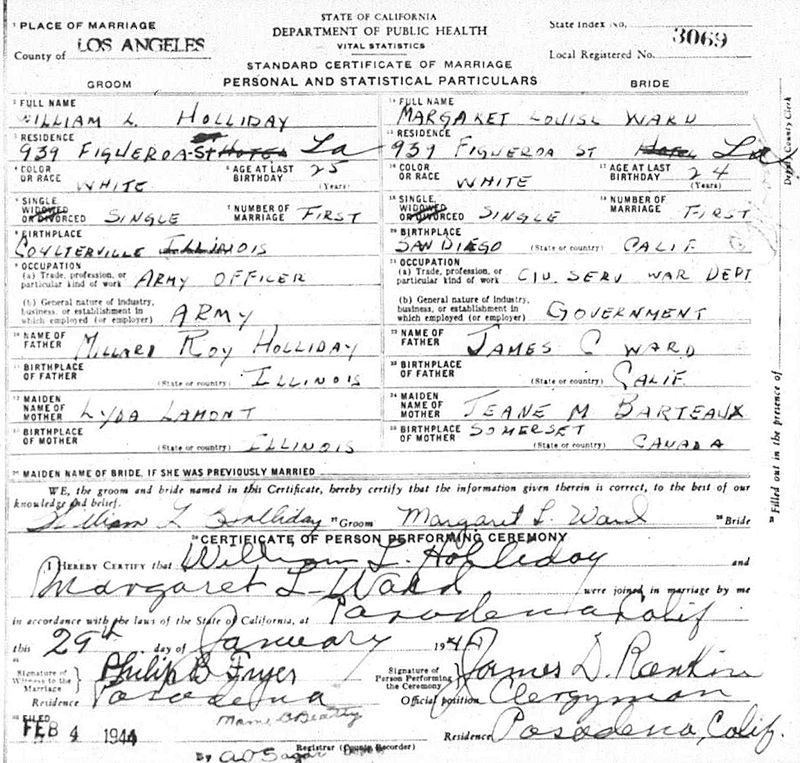 PLACE OF MARRIAGE
STATE OF CALIFORNIA
DEPARTMENT OF PUBLIC HEALTH
VITAL STATISTICS
State Index No.
County of LOS ANGELES
Local Registered No. 3069
STANDARD CERTIFICATE OF MARRIAGE
PERSONAL AND STATISTICAL PARTICULARS
GROOM
BRIDE
FULL NAME
WILLIAM L. HOLLIDAY
FULL NAME
MARGARET LOUISE WARD
RESIDENCE
939 FIGUEROA ST HOTEL La
RESIDENCE
939 FIGUEROA ST HOTEL La
COLOR OR RACE WHITE
AGE AT LAST BIRTHDAY 25 (Years)
COLOR OR RACE WHITE
AGE AT LAST BIRTHDAY 24 (Years)
SINGLE WIDOWED OR DIVORCED SINGLE
NUMBER OF MARRIAGE FIRST
SINGLE WIDOWED OR DIVORCED SINGLE
NUMBER OF MARRIAGE FIRST
BIRTHPLACE
COULTERVILLE ILLINOIS
BIRTHPLACE
SAN DIEGO (State or country) CALIF.
OCCUPATION
(a) Trade, profession, or particular kind of work ARMY OFFICER
OCCUPATION
(a) Trade, profession, or particular kind of work CIV. SERV WAR DEPT
(b) General nature of industry, business, or establishment in which employed (or employer) ARMY
(b) General nature of industry, business, or establishment in which employed (or employer) GOVERNMENT
NAME OF FATHER MILLARD ROY HOLLIDAY
NAME OF FATHER JAMES C WARD
BIRTHPLACE OF FATHER (State or country) ILLINOIS
BIRTHPLACE OF FATHER (State or country) CALIF.
MAIDEN NAME OF MOTHER LYDA LAMONT
MAIDEN NAME OF MOTHER JEANE M BARTEAUX
BIRTHPLACE OF MOTHER (State or country) ILLINOIS
BIRTHPLACE OF MOTHER SOMERSET (State or country) CANADA
MAIDEN NAME OF BRIDE, IF SHE WAS PREVIOUSLY MARRIED
WE, the groom and bride named in this Certificate, hereby certify that the information given therein is correct, to the best of our
knowledge and belief.
William L Holliday Groom Margaret L. Ward Bride
CERTIFICATE OF PERSON PERFORMING CEREMONY
I HEREBY CERTIFY that William L. Holliday and
Margaret L. Ward were joined in marriage by me
in accordance with the laws of the State of California, at Pasadena Calif
this 29th day of January 1944
Signature of Witness to the Marriage Philip B Fryer
Signature of Person Performing the Ceremony James D. Rankin
Residence Pasadena
Official position Clergyman
FILED
FEB 4 1944
Mame B Beatty
Registrar (County Recorder)
Residence Pasadena, Calif.
By
Deputy County Clerk
Filled out in the presence of